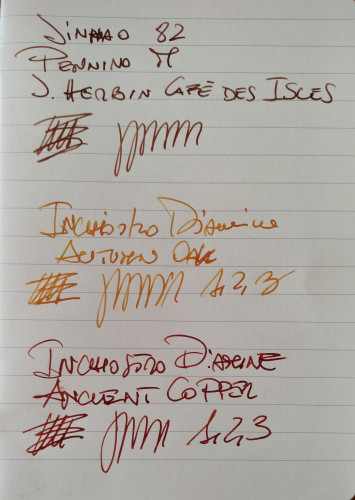 JINHAO 82
PENNINO M
J. HERBIN CAFÉ DES ISLES
INCHIOSTRO Diamine
AUTUMN OAK
1, 2, 3
INCHIOSTRO DIAMINE
ANCIENT COPPER
1, 2, 3